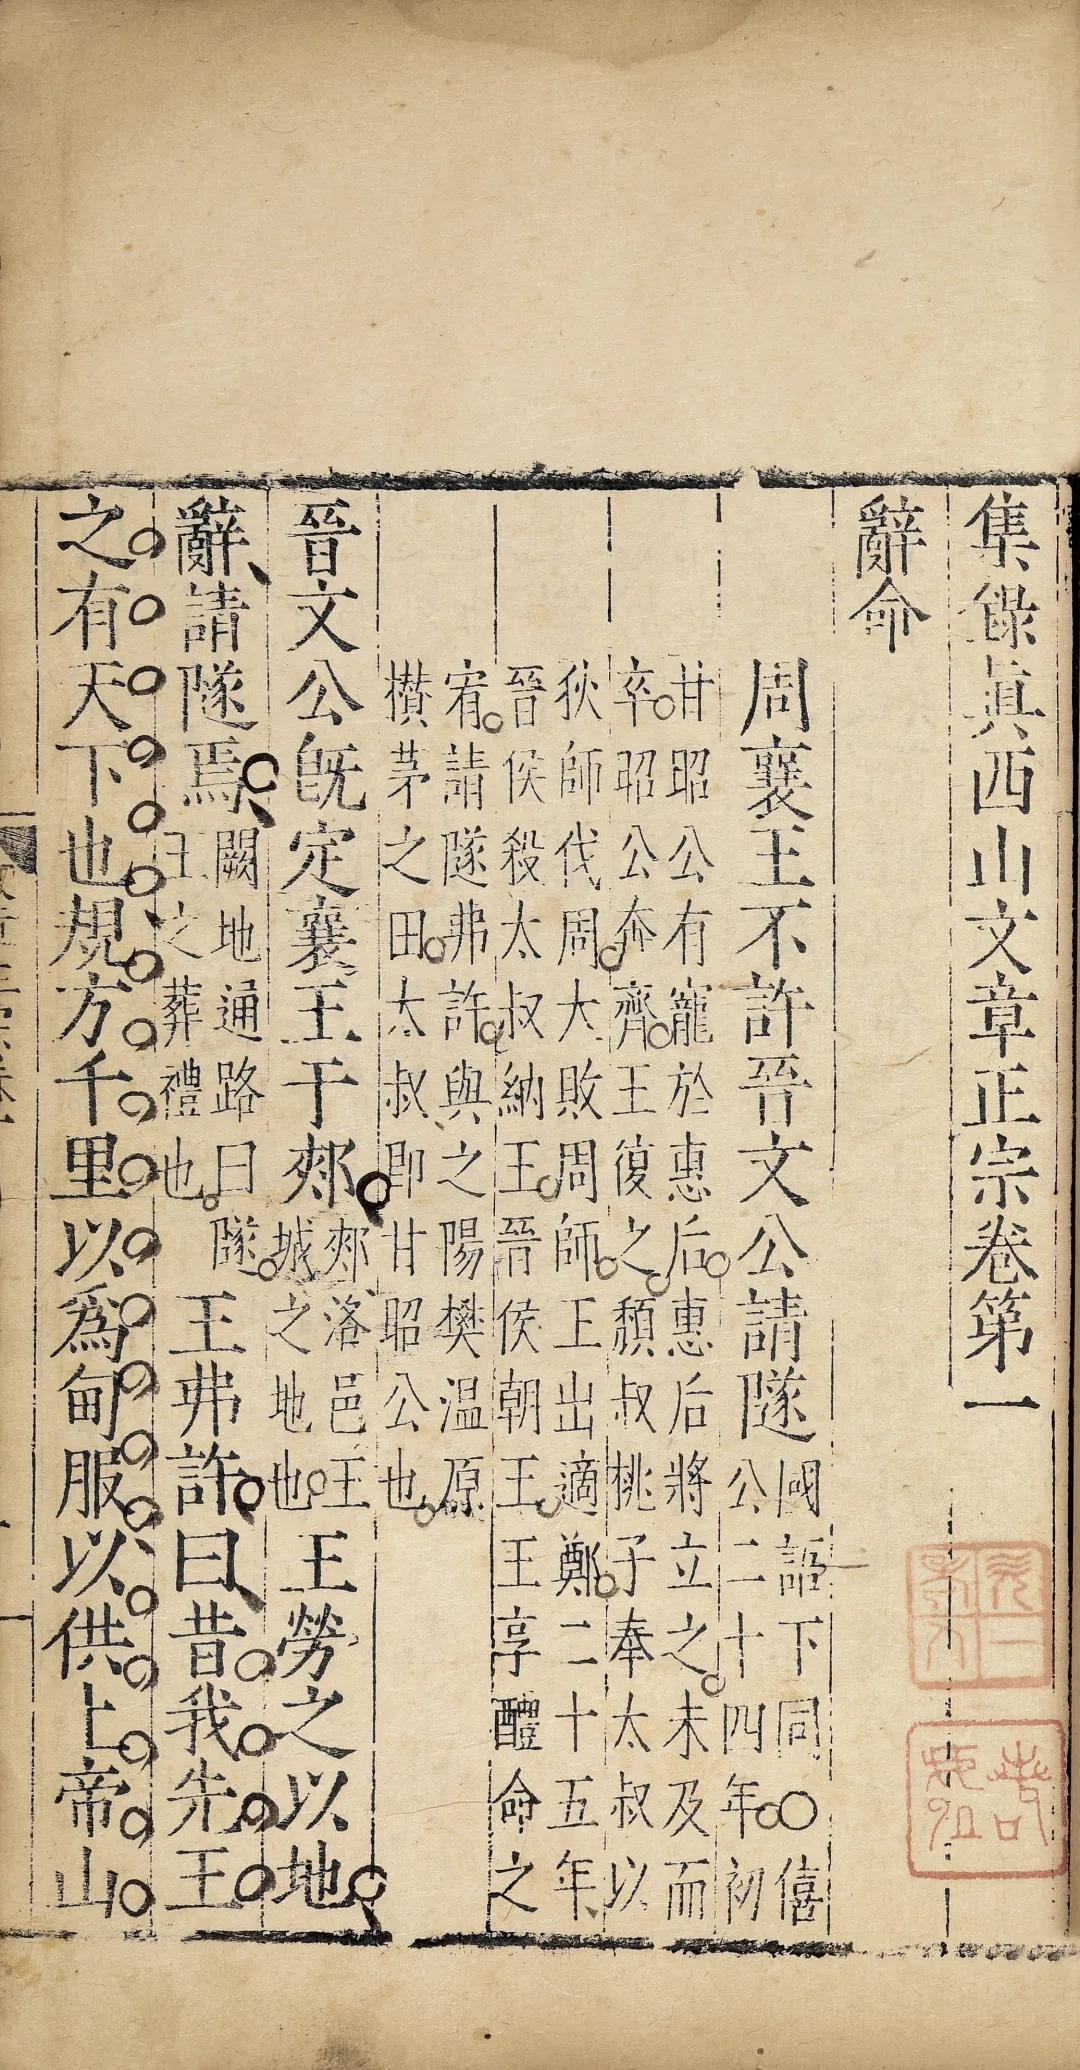 集錄眞西山文章正宗卷第一
辭命
周襄王不許晉文公請隧國語下同○僖
公二十四年初
甘昭公有寵於惠后惠后將立之未及而
卒昭公奔齊王復之頹叔桃子奉太叔以
狄師伐周大敗周師王出適鄭二十五年
晉侯殺太叔納王晉侯朝王王享醴命之
宥請隧弗許與之陽樊温原
攢茅之田太叔即甘昭公也
晉文公旣定襄王于郟郟洛邑王城之地也王勞之以地
辭請隧焉闕地通路曰隧王之葬禮也王弗許曰昔我先王
之有天下也規方千里以爲甸服以供上帝山